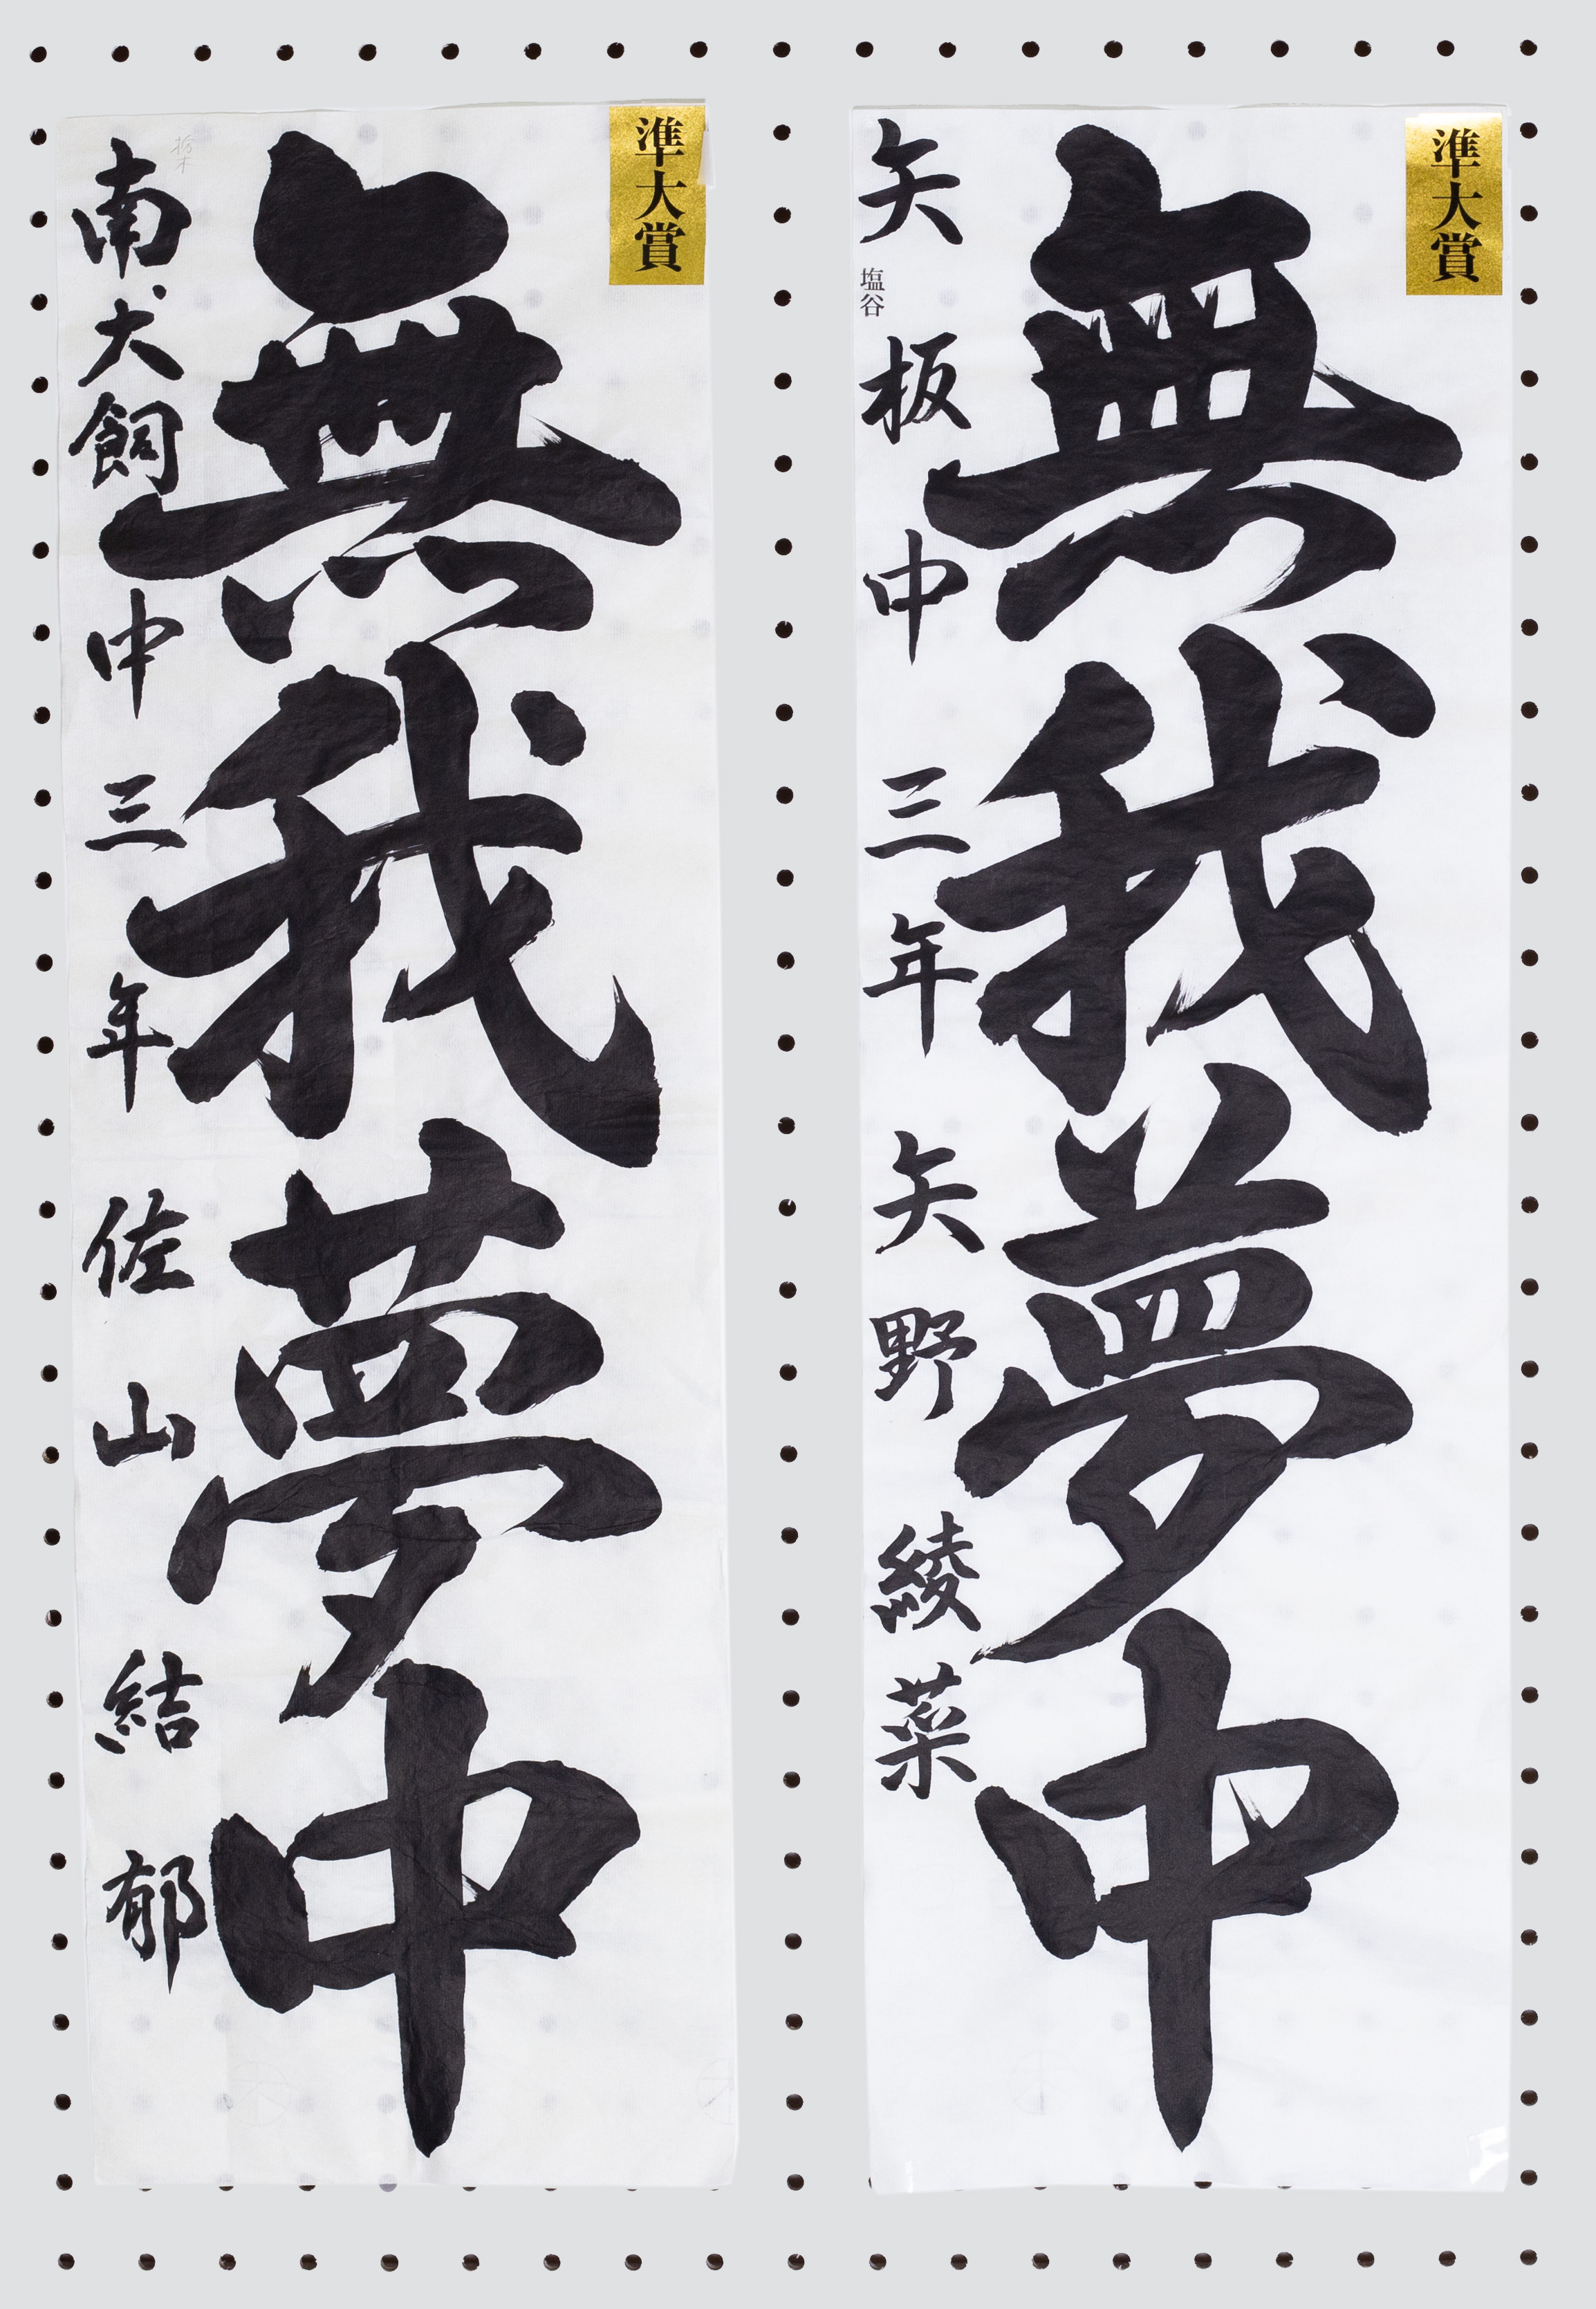 準大賞
無我夢中
矢板中三年矢野綾菜
塩谷
準大賞
無我夢中
南犬飼中三年佐山結郁
栃木